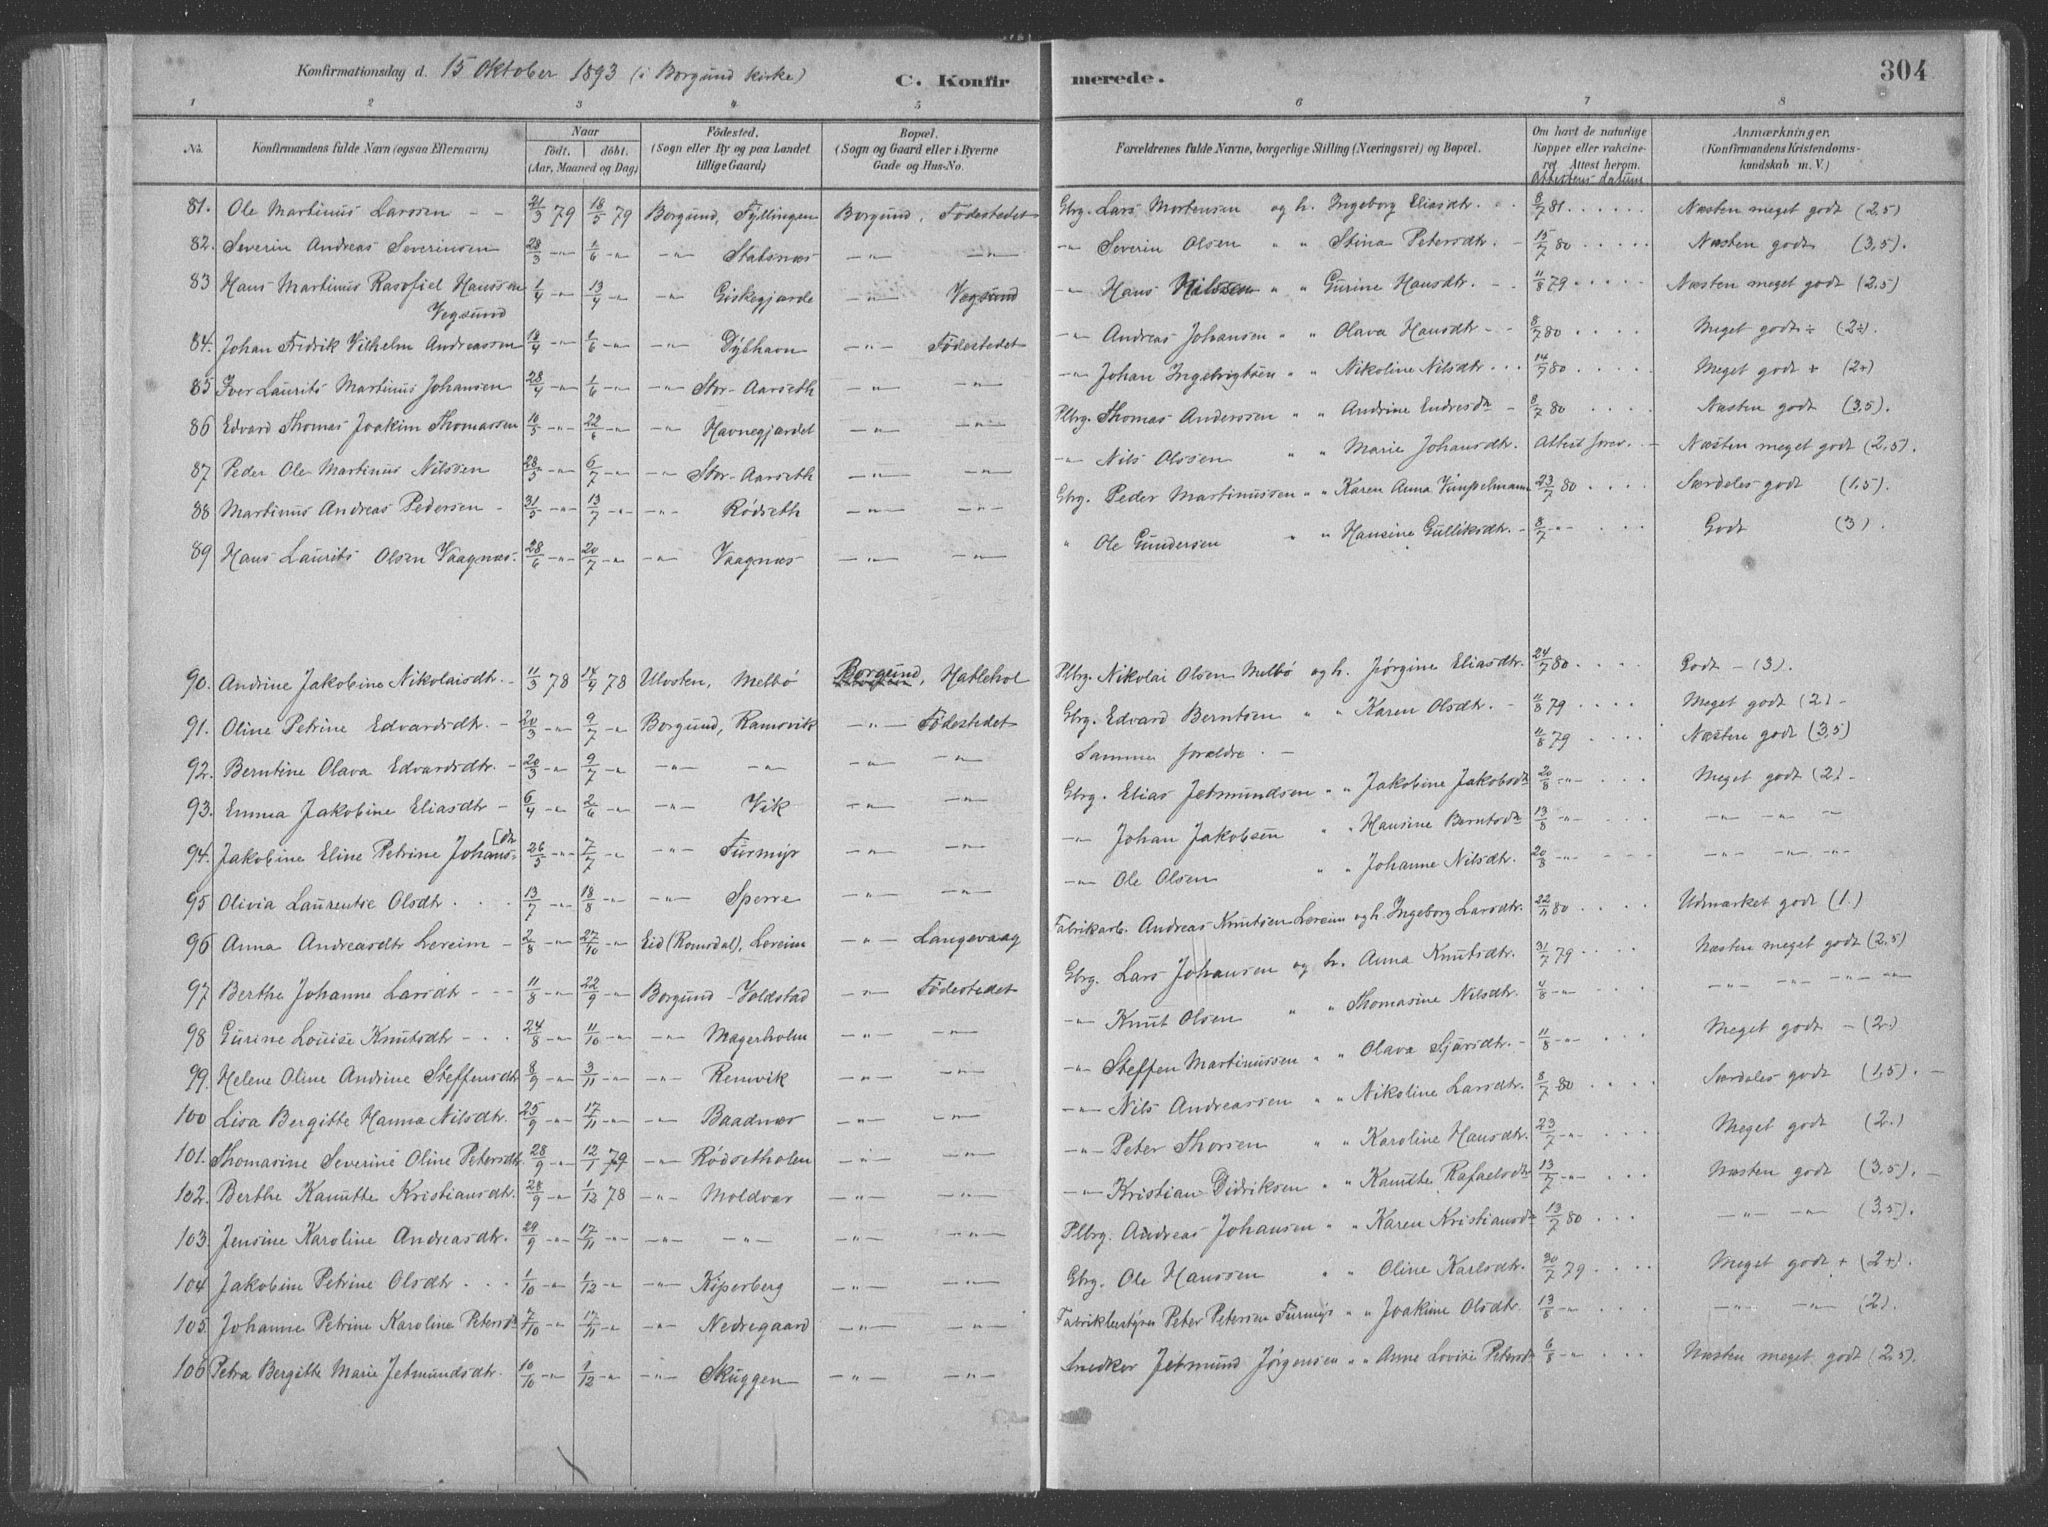 Konfirmationsdag d. 15 Oktober 1893 (i Borgund kirke) C. Konfirmerede. 304
1 2 3 4 5 6 7 8
No. Konfirmandens fulde Navn (ogsaa Efternavn) Naar født. døbt. (Aar, Maaned og Dag) Fødested. (Sogn eller By og paa Landet tillige Gaard) Bopæl. (Sogn og Gaard eller i Byerne Gade og Hus-No. Forældrenes fulde Navne, borgerlige Stilling (Næringsvei) og Bopæl. Om havt de naturlige Kopper eller vakcineret Attest herom. Attestens datum Anmærkninger. (Konfirmandens Kristendomskundskab m. V.)
81. Ole Martinus Larssen - - 21/3 79 18/5 79 Borgund, Fyllingen Borgund, Fødestedet Gbrg. Lars Mortensen og h. Ingeborg Eliasdtr. 8/7 81 Næsten meget godt (2,5)
82. Severin Andreas Severinsen 28/3 -"- 1/6 -"- -"- Statsnæs -"- -"- -"- Severin Olsen " " Stina Petersdtr. 15/7 80 Næsten godt (3,5).
83 Hans Martinus Rasofiel Hanssen Vegsund 1/4 -"- 13/4 -"- -"- Giskegjærde -"- Vegsund -"- Hans Nilssen " " Gurine Hansdtr. 11/8 79 Næsten meget godt (2,5)
84. Johan Fredrik Vilhelm Andreassen 18/4 -"- 1/6 -"- -"- Dybhavn -"- Fødestedet -"- Andreas Johansen " " Olava Hansdtr - - 8/7 80 Meget godt ÷ (2÷).
85 Iver Laurits Martinus Johansen 28/4 -"- 1/6 -"- -"- Stor-Aarseth -"- -"- -"- Johan Ingebrigtsen " " Nikoline Nilsdtr 14/7 80 Meget godt + (2+)
86 Edvard Thomas Joakim Thomassen 10/5 -"- 22/6 -"- -"- Havnegjærdet -"- -"- Plbrg. Thomas Anderssen " " Andrine Endresdtr - 8/7 80 Næsten godt (3,5).
87 Peder Ole Martinus Nilssen 28/5 -"- 6/7 -"- -"- Stor-Aarseth -"- -"- -"- Nils Olssen " " Marie Johansdtr. Attest forev. - Næsten meget godt (2,5).
88 Martinus Andreas Pedersen - 31/5 -"- 13/7 -"- -"- Rødseth -"- -"- Gbrg. Peder Martinussen " " Karen Anna Vimpelmann 23/7 80 Særdeles godt (1,5)
89 Hans Laurits Olsen Vaagnæs. 28/6 -"- 20/7 -"- -"- Vaagnæs -"- -"- " Ole Gundersen " " Hansine Gulliksdtr. - 8/7 -"- Godt (3).
90. Andrine Jakobine Nikolaisdtr. - 11/3 78 14/4 78 Ulvsten, Melbø Borgund, Hatlehol Plbrg. Nikolai Olsen Melbø og h. Jørgine Eliasdtr. 24/7 80 Godt - (3).
91. Oline Petrine Edvardsdtr. - 20/3 -"- 9/7 -"- Borgund, Ramsvik -"- Fødestedet Gbrg. Edvard Berntsen " " Karen Olsdtr. - 11/8 79 Meget godt (2) -
92. Berntine Olava Edvardsdtr. - 20/3 -"- 9/7 -"- -"- -"- -"- -"- Samme forældre. - 11/8 79 Næsten godt (3,5)
93. Emma Jakobine Eliasdtr - 6/4 -"- 2/6 -"- -"- Vik -"- -"- Gbrg. Elias Jetmundsen " " Jakobine Jakobsdtr 20/8 -"- Meget godt (2) -
94. Jakobine Eline Petrine Johansdtr 26/5 -"- 7/7 -"- -"- Furmyr -"- -"- -"- Johan Jakobsen " " Hansine Berntsdtr 13/8 -"- -"- -"- -
95 Olivia Laurentse Olsdtr. 13/7 -"- 18/8 -"- -"- Sperre -"- -"- -"- Ole Olsen " " Johanne Nilsdtr. 20/8 -"- -"- -"- -"-
96 Anna Andreasdtr Lereim - 2/8 -"- 27/10 -"- Eid (Romsdal), Lereim -"- Langevaag Fabrikarb. Andreas Knutsen Lereim og h. Ingeborg Larsdtr. 22/11 80 Udmærket godt (1.)
97 Berthe Johanne Larsdtr - - 11/8 -"- 22/9 -"- Borgund - Voldstad -"- Fødestedet Gbrg. Lars Johansen og h. Anna Knutsdtr. 31/7 79 Næsten meget godt (2,5)
98 Gurine Louise Knutsdtr - 24/8 -"- 11/10 -"- -"- Magerholm -"- -"- -"- Knut Olsen " " Thomasine Nilsdtr. 4/8 -"- -"- -"- -"- -"-
99. Helene Oline Andrine Steffensdtr 8/9 -"- 3/11 -"- -"- Remvik -"- -"- -"- Steffen Martinussen " " Olava Sjursdtr. - 11/8 -"- Meget godt - (2.)
100 Lisa Bergitte Hanna Nilsdtr. 25/9 -"- 17/11 -"- -"- Baadnæs -"- -"- -"- Nils Andreassen " " Nikoline Larsdtr. 8/7 80 Særdeles godt (1,5). -
101. Thomasine Severine Oline Petersdtr 28/9 -"- 12/1 79 -"- Rødsetholen -"- -"- -"- Peter Thorsen " " Karoline Hansdtr. 23/7 -"- Meget godt (2.)
102. Berthe Kanutte Kristiansdtr. 28/9 -"- 1/12 78 -"- Moldvær -"- -"- -"- Kristian Didriksen " " Kanutte Rafaelsdtr 13/7 -"- Næsten godt (3,5). -
103. Jensine Karoline Andreasdtr. 29/9 -"- 17/11 -"- -"- -"- -"- -"- Plbrg. Andreas Johansen " " Karen Kristiansdtr 13/7 80 -"- -"- (3,5).
104 Jakobine Petrine Olsdtr 1/10 -"- 1/12 -"- -"- Kiperberg -"- -"- Gbrg. Ole Hanssen " " Oline Karlsdtr. 30/7 79 Meget godt + (2+).
105. Johanne Petrine Karoline Petersdtr 7/10 -"- 17/11 -"- -"- Nedregaard -"- -"- Fabrikbestyrer Peter Petersen Furmyr " " Joakime Olsdtr. 13/8 -"- -"- -"- (2)
106 Petra Bergitte Marie Jetmundsdtr. 10/10 -"- 1/12 -"- -"- Skuggen -"- -"- Snedker Jetmund Jørgensen " " Anne Lovise Petersdtr 6/8 -"- Næsten meget godt (2,5).